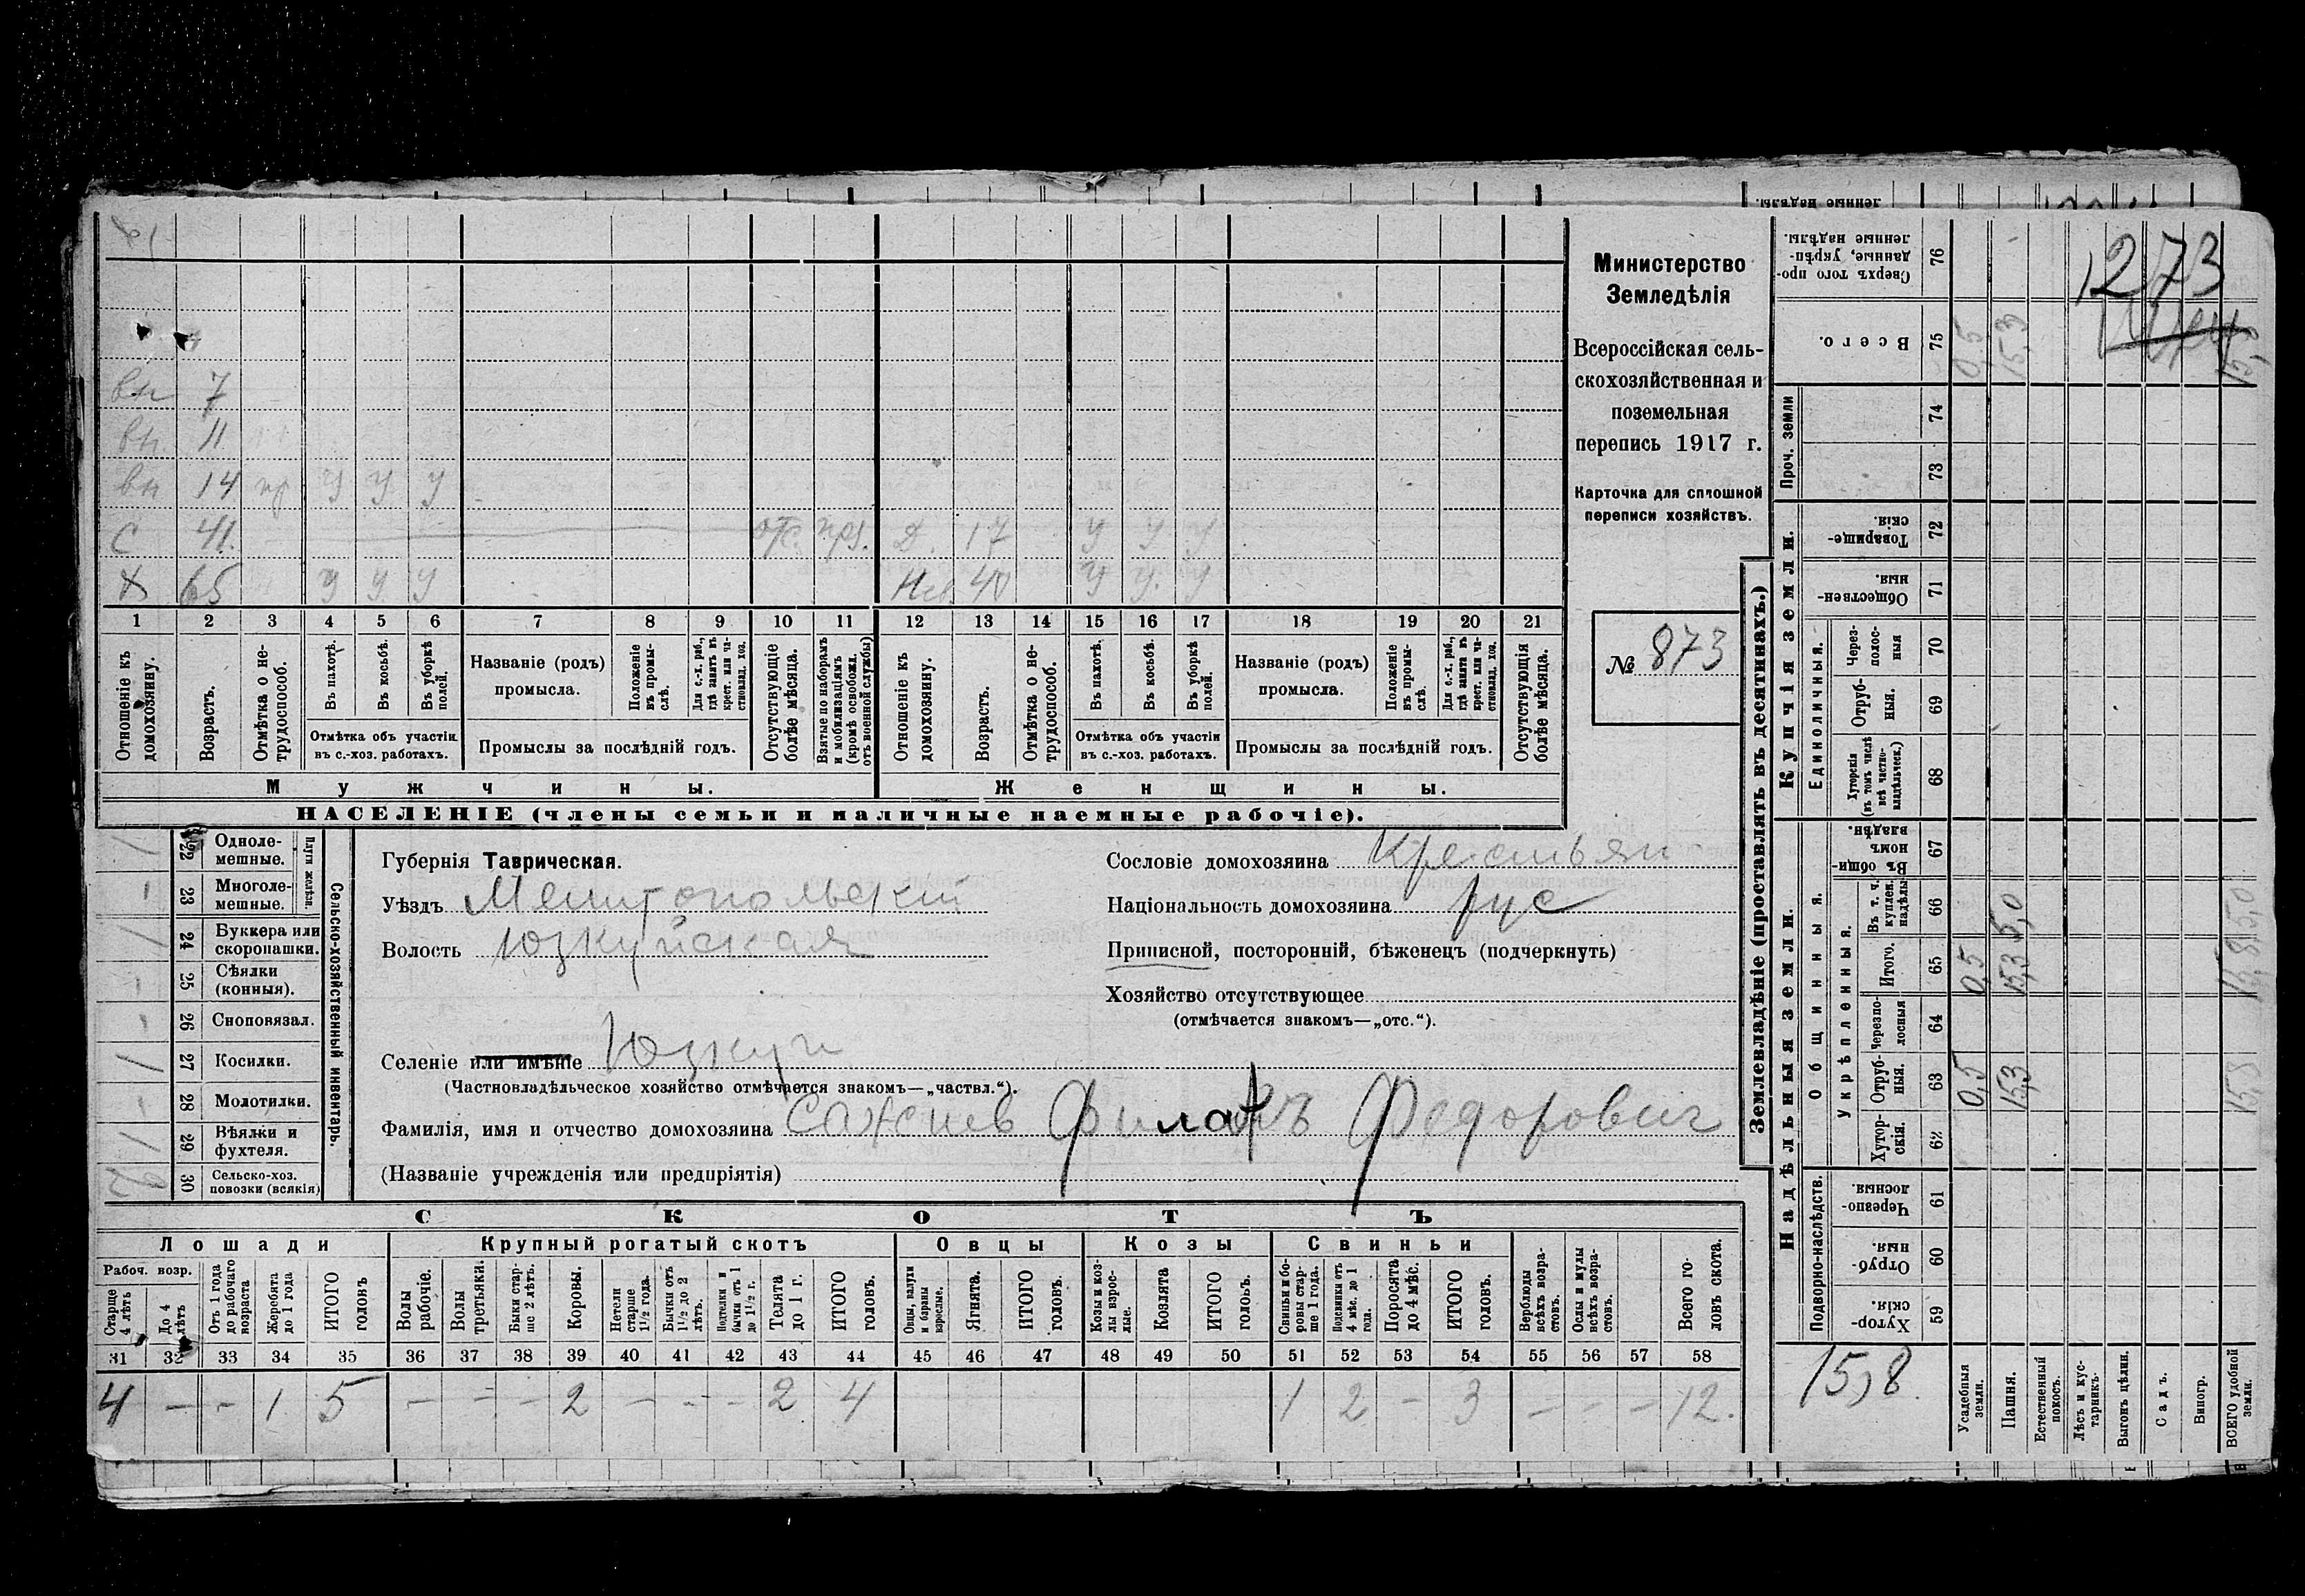 вн 7
вн. 11
вн 14 У У У
С 41. отс. Д. 17 У У У
Х 65 У У У Нев. 40 У У. У
1 2 3 4 5 6 7 8 9 10 11 12 13 14 15 16 17 18 19 20 21
Отношеніе къ домохозяину.
Возрастъ.
Отмѣтка о не-трудоспособ.
Въ пахотѣ.
Въ косьбѣ.
Въ уборкѣ полей.
Отмѣтка объ участіи
въ с.-хоз. работахъ.
Названіе (родъ)
промысла.
Положеніе въ промы-слѣ.
Для с.-х. раб., гдѣ занятъ въ крест. или ча-стновлад. хоз.
Промыслы за послѣдній годъ.
Отсутствующіе болѣе мѣсяца.
Взятые по наборамъ и мобилизаціямъ (кромѣ освобожд. отъ военной службы)
Отношеніе къ домохозяину.
Возрастъ.
Отмѣтка о не-трудоспособ.
Въ пахотѣ.
Въ косьбѣ.
Въ уборкѣ полей.
Отмѣтка объ участіи
въ с.-хоз. работахъ.
Названіе (родъ)
промысла.
Положеніе въ промы-слѣ.
Для с.-х. раб., гдѣ занята въ крест. или ча-стновлад. хоз.
Промыслы за послѣдній годъ.
Отсутствующія болѣе мѣсяца.
Мужчины. Женщины.
НАСЕЛЕНІЕ (члены семьи и наличные наемные рабочіе).
Министерство
Земледѣлія
Всероссійская сель-
скохозяйственная и
поземельная
перепись 1917 г.
Карточка для сплошной
переписи хозяйствъ.
№ 873
1 22 Одноле-мешные.
- 23 Многоле-мешные.
Плуги желѣзн.
1 24 Буккера или скоропашки.
- 25 Сѣялки (конныя).
- 26 Сноповязал.
1 27 Косилки.
- 28 Молотилки.
1 29 Вѣялки и фухтеля.
2 30 Сельско-хоз. повозки (всякія)
Сельско-хозяйственный инвентарь.
Губернія Таврическая.
Уѣздъ Мелитопольскій
Волость Юзкуйская
Селеніе или имѣніе Юзкуи
(Частновладѣльческое хозяйство отмѣчается знакомъ—„частвл.“).
Фамилія, имя и отчество домохозяина Сажнев Филатъ Федорович
(Названіе учрежденія или предпріятія)
Сословіе домохозяина Крестьян
Національность домохозяина рус
Приписной, посторонній, бѣженецъ (подчеркнуть)
Хозяйство отсутствующее
(отмѣчается знакомъ—„отс.“).
СКОТЪ
Лошади Крупный рогатый скотъ Овцы Козы Свиньи
Рабоч. возр.
Старше 4 лѣтъ
До 4 лѣтъ
Отъ 1 года до рабочаго возраста
Жеребята до 1 года
ИТОГО головъ
Волы рабочіе.
Волы третьяки.
Быки стар-ше 2 лѣтъ.
Коровы.
Нетели старше 1½ года.
Бычки отъ 1½ до 2 лѣтъ.
Подтелки и бычки отъ 1 до 1½ г.
Телята до 1 г.
ИТОГО головъ.
Овцы, валухи и бараны взрослые.
Ягнята.
ИТОГО головъ.
Козы и коз-лы взрос-лые.
Козлята
ИТОГО головъ.
Свиньи и бо-ровы стар-ше 1 года.
Подсвинки отъ 4 мѣс. до 1 года.
Поросята до 4 мѣс.
ИТОГО головъ.
Верблюды всѣхъ возра-стовъ.
Ослы и мулы всѣхъ возра-стовъ.
Всего го-ловъ скота.
31 32 33 34 35 36 37 38 39 40 41 42 43 44 45 46 47 48 49 50 51 52 53 54 55 56 57 58
4 - - 1 5 - - - 2 - - - 2 4 1 2 - 3 - - - 12.
Землевладѣніе (проставлять въ десятинахъ.)
1273
Сверхъ того про-данные, укрѣп-ленные надѣлы. 76
Всего. 75 0,5 15,3
Проч. земли 74
73
Купчія земли.
Товарище-скія. 72
Обществен-ныя. 71
Единоличныя.
Через-полос-ныя 70
Отруб-ныя. 69
Хуторскія (въ томъ числѣ всѣ частно-владѣльческ.) 68
Надѣльныя земли.
Общинныя.
Въ общин-номъ владѣн. 67
Укрѣпленныя.
Въ т. ч. куплен. надѣлы 66 5,0 5,0
Итого. 65 0,5 15,3 15,8
Черезпо-лосныя 64
Отруб-ныя. 63 0,5 15,3
Хутор-скія. 62
Подворно-наслѣдств.
Черезпо-лосныя. 61
Отруб-ныя. 60
Хутор-скія. 59
15,8
Усадебныя земли.
Пашня.
Естественный покосъ.
Лѣсъ и кус-тарникъ.
Выгонъ цѣлин.
Садъ.
Виногр.
ВСЕГО удобной земли.